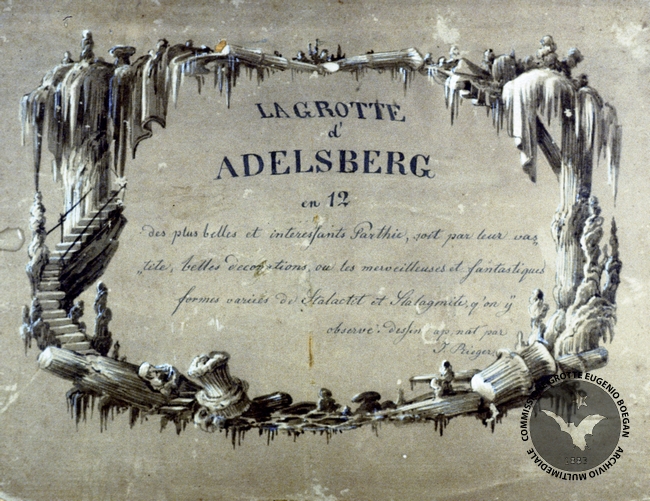 LA GROTTE
d'
ADELSBERG
en 12
des plus belles et interessants Parthie, soit par leur vas„
„tité, belles decorations, ou les merveilleuses et fantastiques
formes variées de Stalactit et Stalagmite, q'on ÿ
observe. dessin: ap. nat par
COMMISSIONE GROTTE EUGENIO BOEGAN
ARCHIVIO MULTIMEDIALE
1883